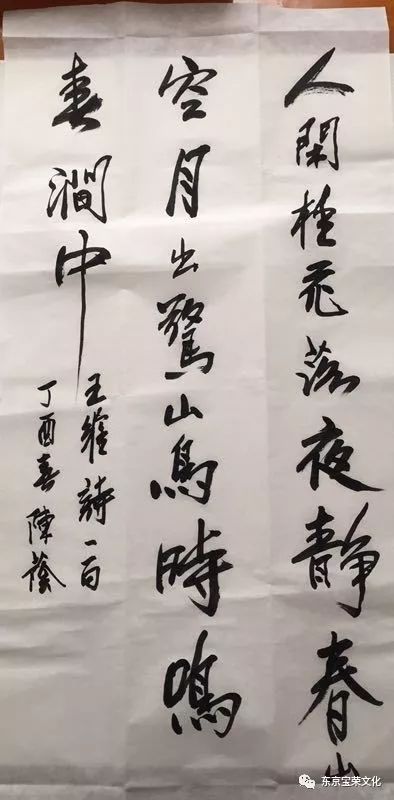 人閑桂花落夜靜春山
空月出驚山鳥時鳴
春澗中
王維詩一首
丁酉春陳蔭
东京宝荣文化